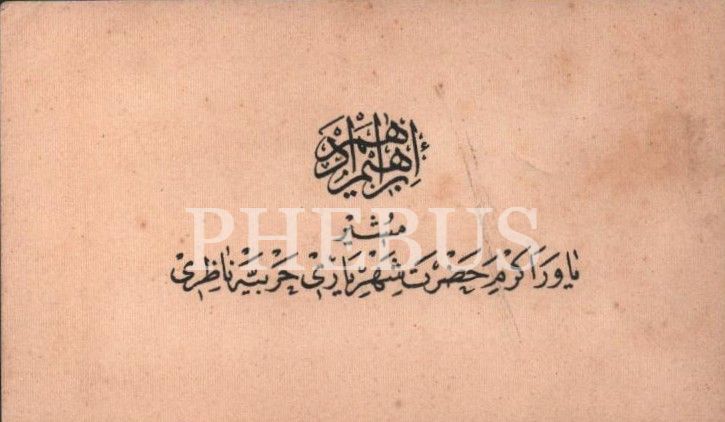 ابراهيم ادهم
مشير
PHEBUS
ياور اكرم حضرت شهريارى حربيه ناظرى